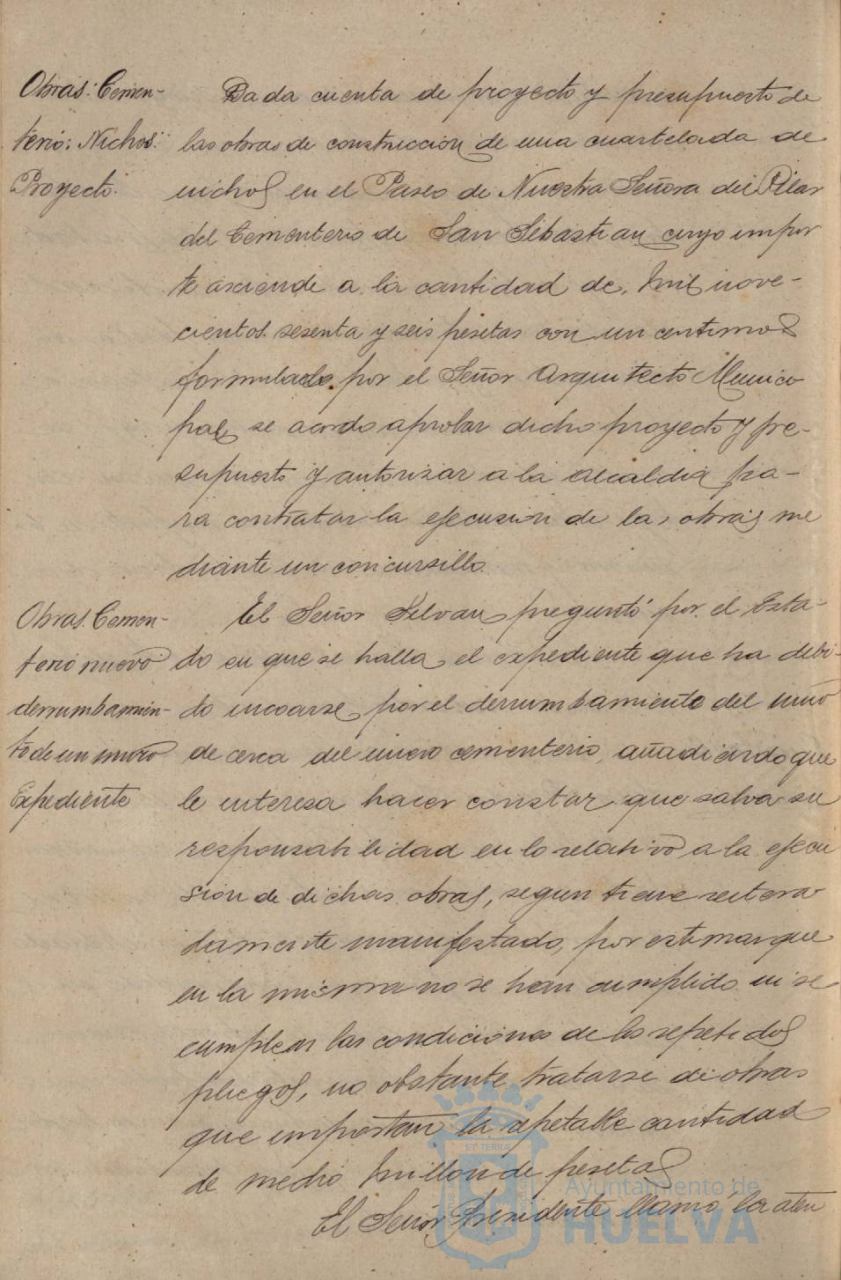 Obras: Cemen-
terio: Nichos:
Proyecto.
Dada cuenta de proyecto y presupuesto de
las obras de construccion de una cuartelada de
nichos en el Paseo de Nuestra Señora del Pilar
del Cementerio de San Sebastian cuyo impor
te asciende a la cantidad de mil nove-
cientos sesenta y seis pesetas con un centimos
formulado por el Señor Arquitecto Munici
pal, se acordo aprobar dicho proyecto y pre-
supuesto y autorizar a la alcaldia pa-
ra contratar la ejecusion de las obras me
diante un concursillo.
Obras. Cemen-
terio nuevo
derrumbamien-
to de un muro
Expediente
El Señor Kelvan preguntó por el Esta-
do en que se halla el expediente que ha debi-
do incoarse por el derrumbamiento del muro
de cerca del nuevo cementerio, añadiendo que
le interesa hacer constar que salva su
responsabilidad en lo relativo a la ejecu
sion de dichas obras, segun tiene reitera
damente manifestado, por estimar que
en la misma no se han cumplido ni se
cumplen las condiciones de los repetidos
pliegos, no obstante tratarse de obras
que importan la repetable cantidad
de medio millon de pesetas
El Señor Presidente llamo la aten
Ayuntamiento de
HUELVA